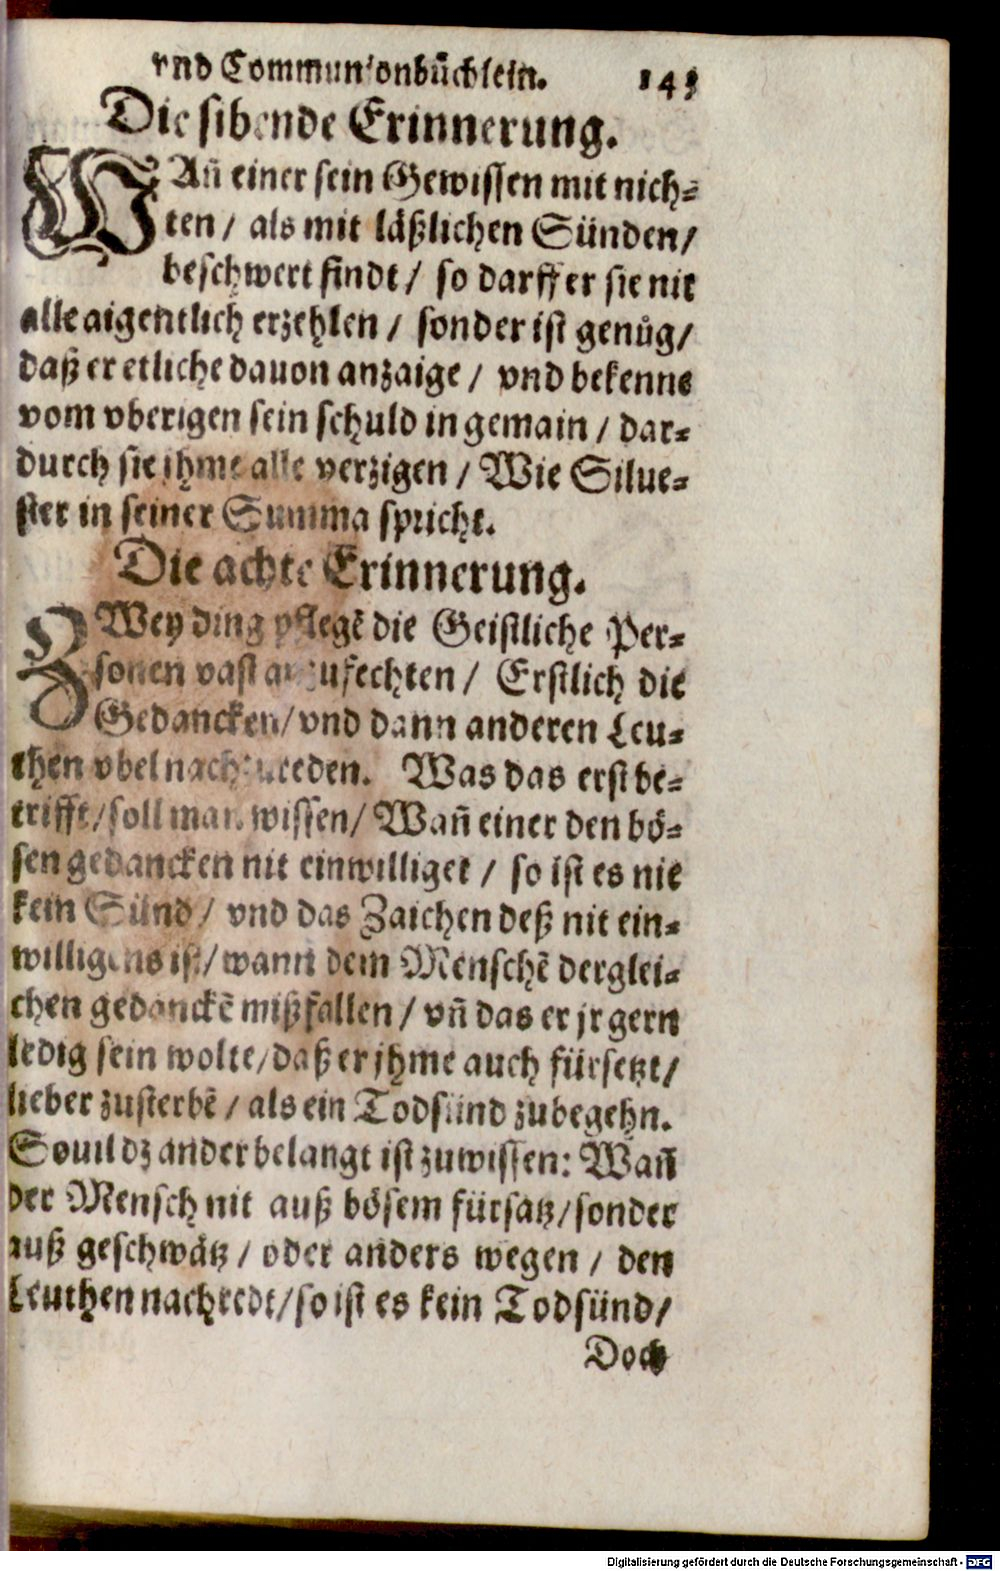 vnd Communionbüchlein. 143
Die sibende Erinnerung.
WAñ einer sein Gewissen mit nich-
ten / als mit läßlichen Sünden /
beschwert findt / so darff er sie nit
alle aigentlich erzehlen / sonder ist genůg /
daß er etliche dauon anzaige / vnd bekenne
vom vberigen sein schuld in gemain / dar-
durch sie jhme alle verzigen / Wie Silue-
ster in seiner Summa spricht.
Die achte Erinnerung.
ZWey ding pflegē die Geistliche Per-
sonen vast anzufechten / Erstlich die
Gedancken / vnd dann anderen Leu-
then vbel nachzureden. Was das erst be-
trifft / soll man wissen / Wañ einer den bö-
sen gedancken nit einwilliget / so ist es nie
kein Sünd / vnd das Zaichen deß nit ein-
willigens ist / wann dem Menschē derglei-
chen gedanckē mißfallen / vñ das er jr gern
ledig sein wolte / daß er jhme auch fürsetzt /
lieber zusterbē / als ein Todsünd zubegehn.
Souil dz ander belangt ist zuwissen: Wañ
der Mensch nit auß bösem fürsatz / sonder
auß geschwätz / oder anders wegen / den
Leuthen nachredt / so ist es kein Todsünd /
Doch
Digitalisierung gefördert durch die Deutsche Forschungsgemeinschaft - DFG